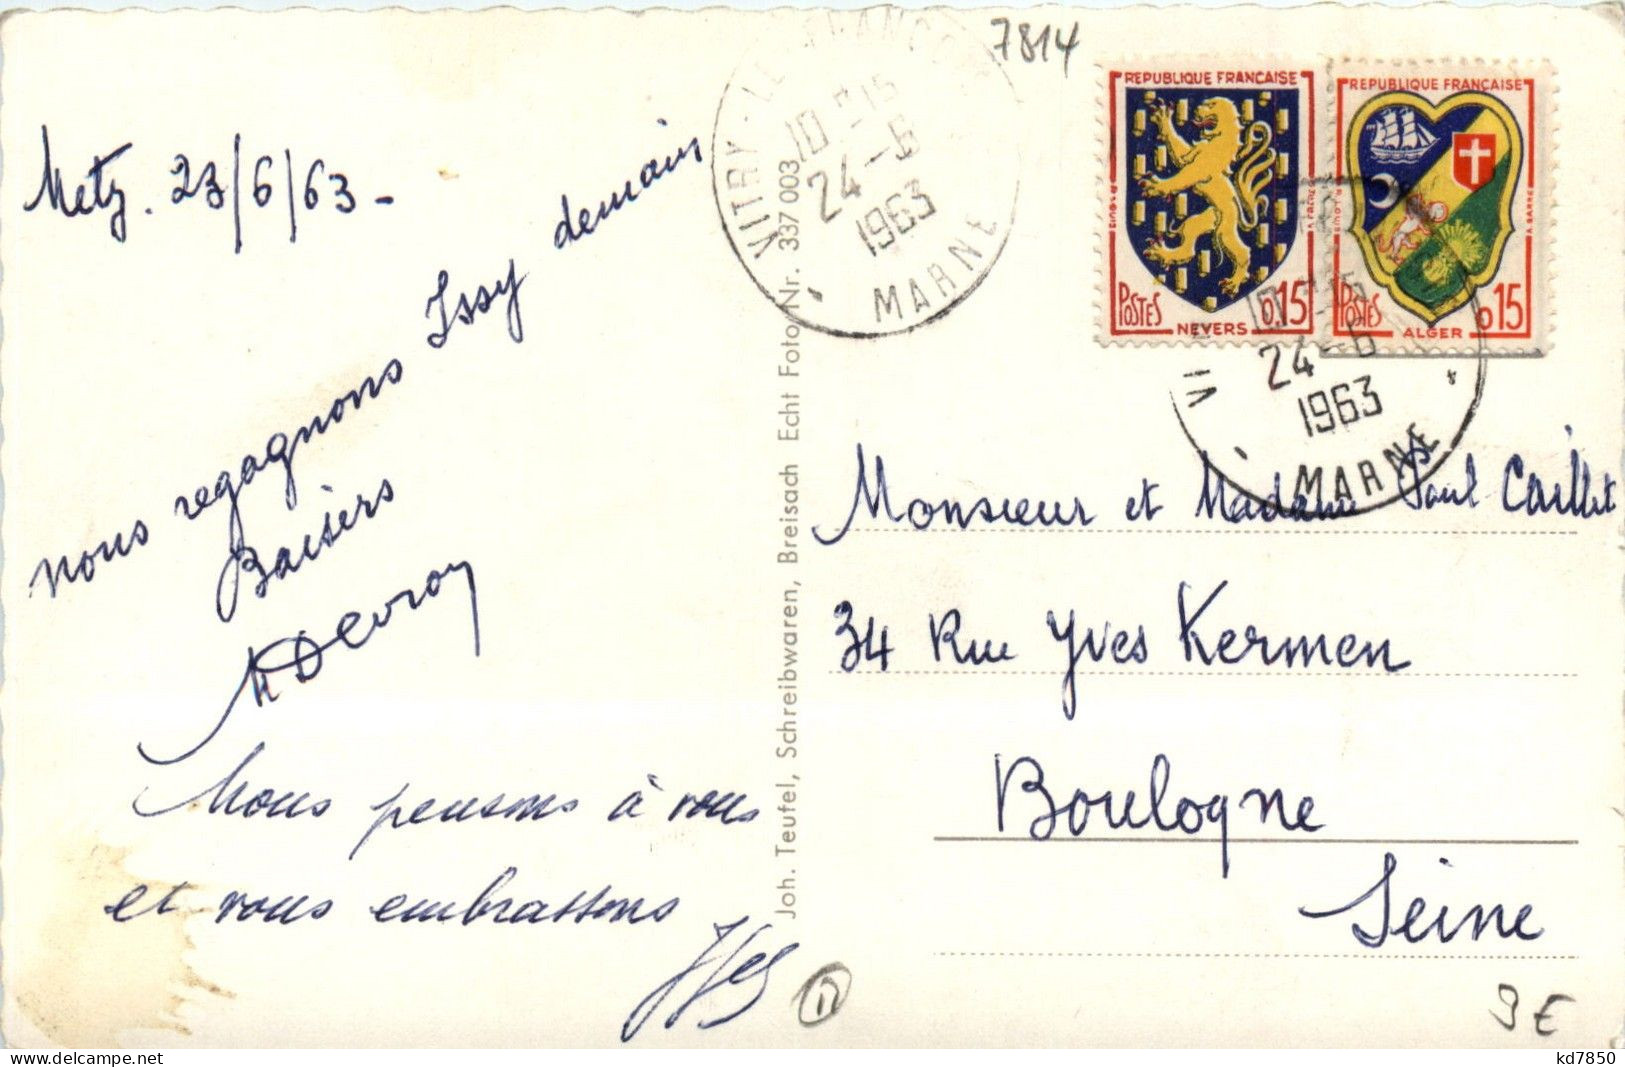 7814
Metz. 23/6/63-
nous regagnons Issy demain
Baisers
Nous pensons à vous
et vous embrassons
Joh. Teufel, Schreibwaren, Breisach Echt Foto Nr. 337 003
VITRY-LE-FRANCOIS
10 H15
24-6
1963
MARNE
REPUBLIQUE FRANCAISE
POSTES
NEVERS
0,15
REPUBLIQUE FRANÇAISE
POSTES
ALGER
0,15
24-6
1963
MARNE
Monsieur et Madame Paul Caillet
34 Rue Yves Kermen
Boulogne
Seine
9 €
kd7850